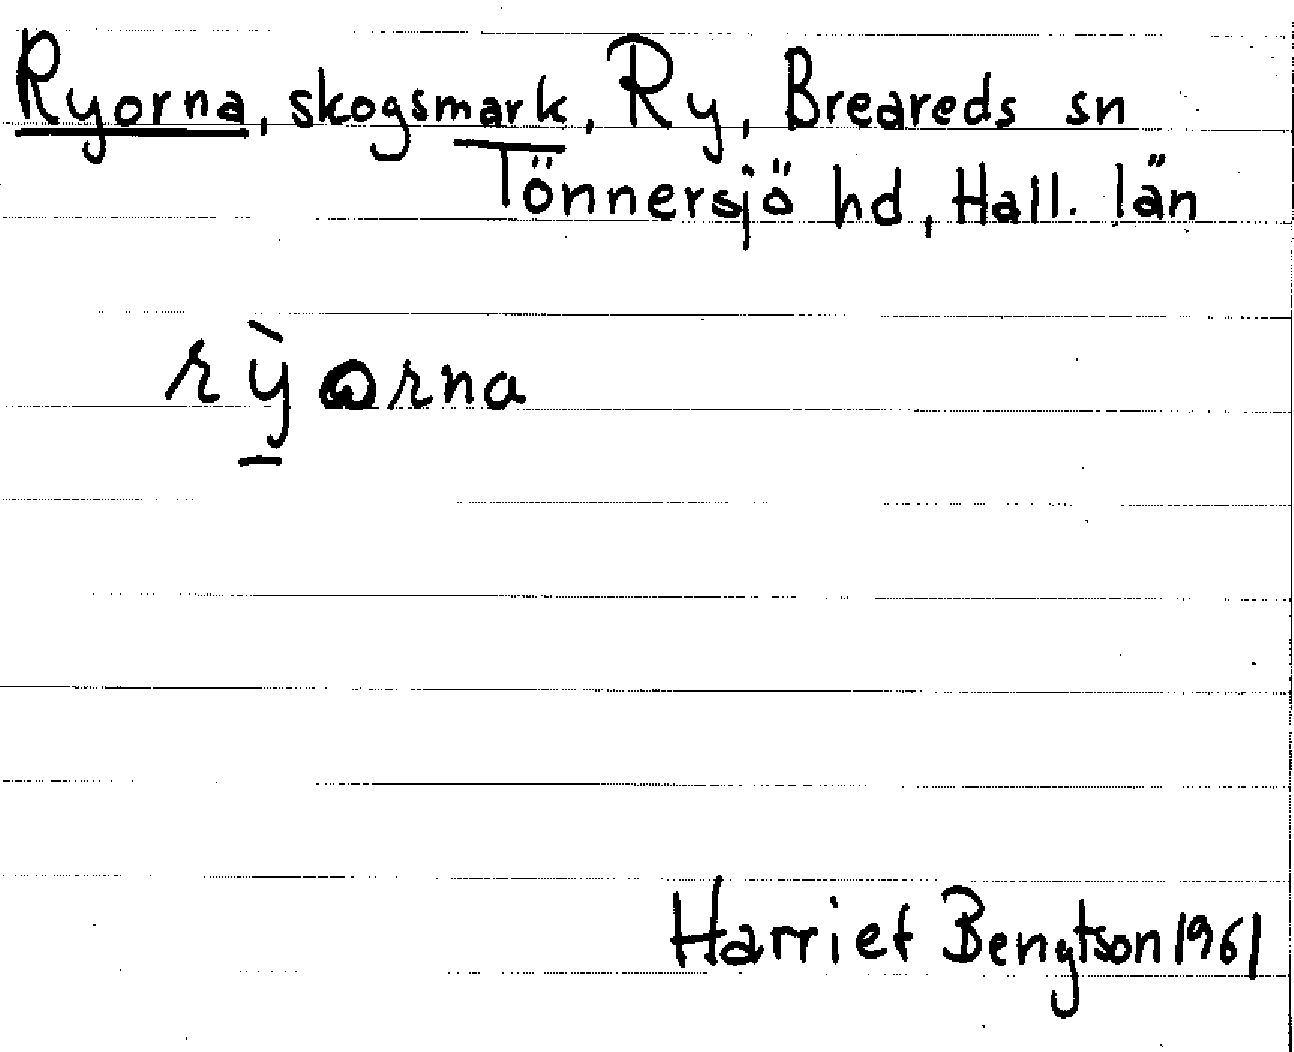 Ryorna, skogsmark, Ry, Breareds sn
Tönnersjö hd, Hall. län
rỳorna
Harriet Bengtson 1961